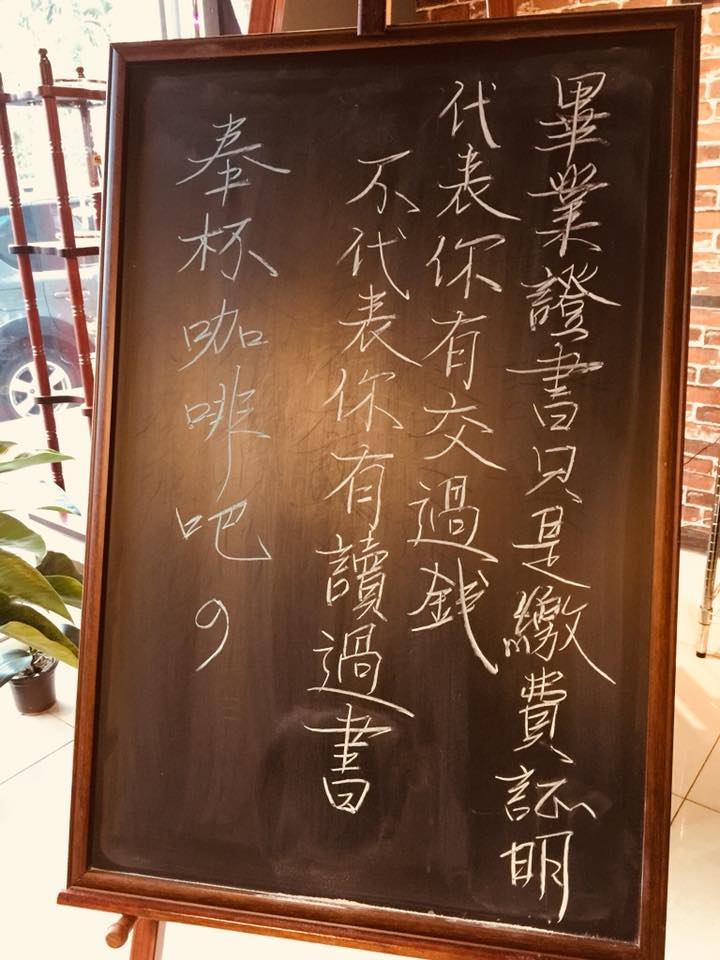 畢業證書只是繳費証明
代表你有交過錢
不代表你有讀過書
奉杯咖啡吧，